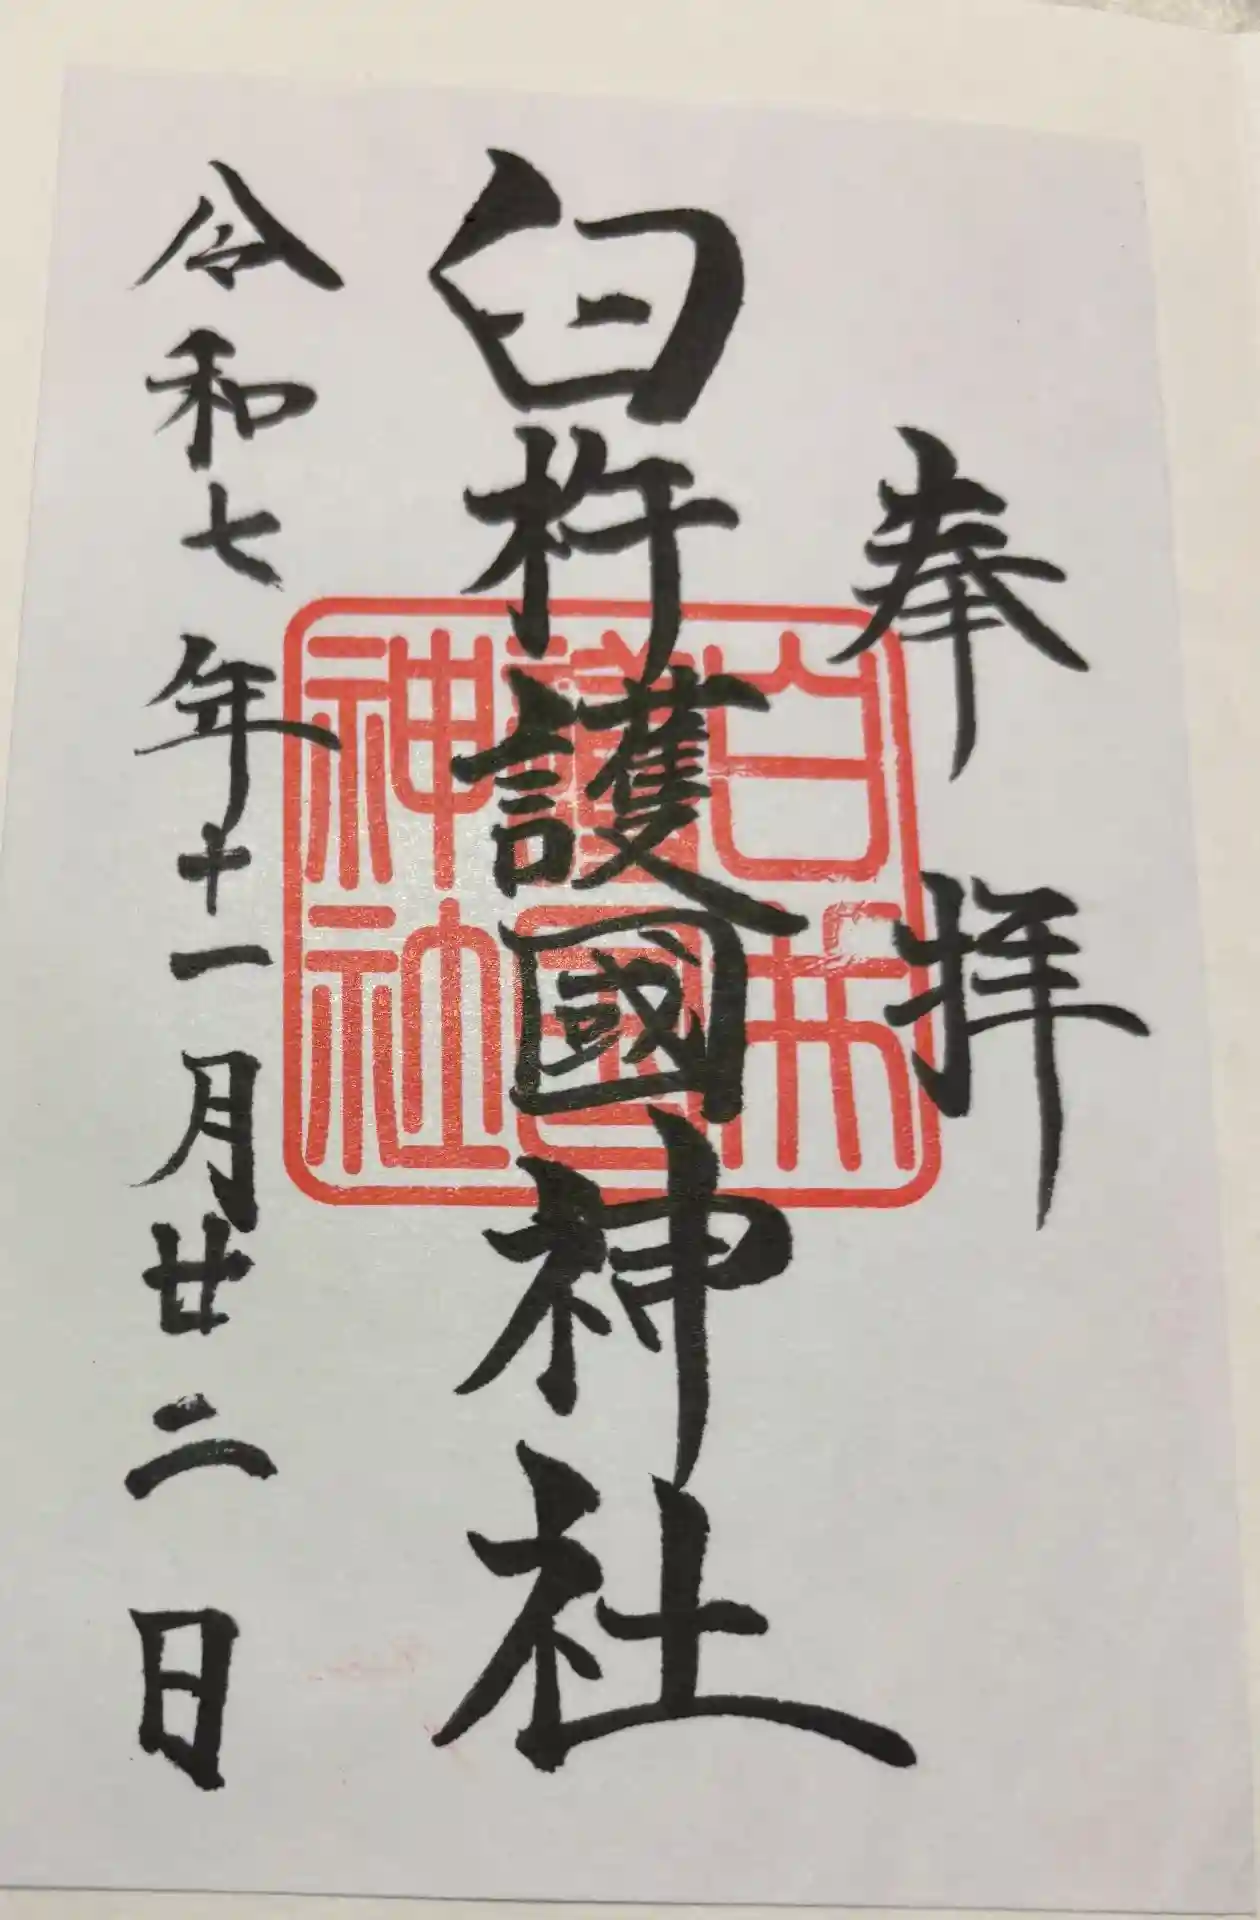 奉拝
臼杵護國神社
令和七年十一月廿二日
臼杵
護国
神社